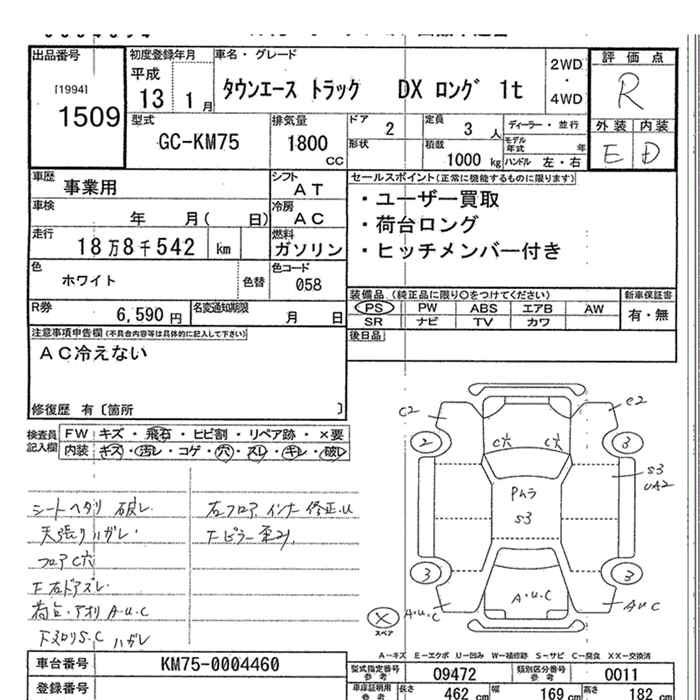 出品番号
[1994]
1509
初度登録年月
平成
13 1月
車名・グレード
タウンエース トラック DX ロング 1t
2WD
・
4WD
評価点
R
外装 内装
E D
型式
GC-KM75
排気量
1800
CC
ドア
2
定員
3人
ディーラー・並行
形状
積載
1000kg
モデル年式 年
ハンドル 左・右
車歴 事業用
シフト
AT
車検 年 月( 日)
冷房
AC
走行
18万8千542 km
燃料
ガソリン
色
ホワイト
色替
色コード
058
R券
6,590円
名変通知期限
月 日
セールスポイント(正常に機能するものに限ります)
・ユーザー買取
・荷台ロング
・ヒッチメンバー付き
装備品(純正品に限り○をつけてください)
PS PW ABS エアB AW
SR ナビ TV カワ
新車保証書
有・無
後日品
注意事項申告欄(不具合内容等は具体的に記入して下さい)
AC冷えない
修復歴 有〔箇所 〕
検査員記入欄
FW キズ・飛石・ヒビ割・リペア跡・×要
内装 キズ・汚レ・コゲ・穴・スレ・キレ・破レ
シートヘタリ 破レ
天張りハガレ
フロアC穴
右フロア インナー修正U
C2
C2
2
3
C穴
C穴
S3
UA2
PムラS3
3
3
A・U・C
A・U・C
AUC
×
スペア
A-キズ E-エクボ U-凹み W-補修跡 S-サビ C-腐食 XX-交換済
車台番号 KM75-0004460
登録番号
型式指定番号
参考
09472
類別区分番号
参考
0011
車庫証明用
参考
長さ 462cm
幅 169cm
高さ 182cm